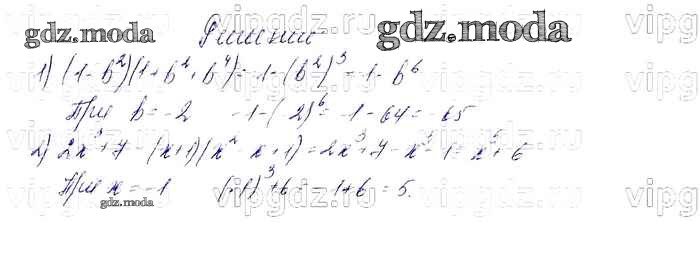 gdz.moda
Решение
gdz.moda
1) (1-b²)(1+b²+b⁴) = 1-(b²)³ = 1-b⁶
При b = -2   1-(-2)⁶ = 1-64 = -65
2) 2x³+7 - (x+1)(x²-x+1) = 2x³+7-x³-1 = x³+6
При x = -1   (-1)³+6 = -1+6 = 5.
gdz.moda
vipgdz.ru